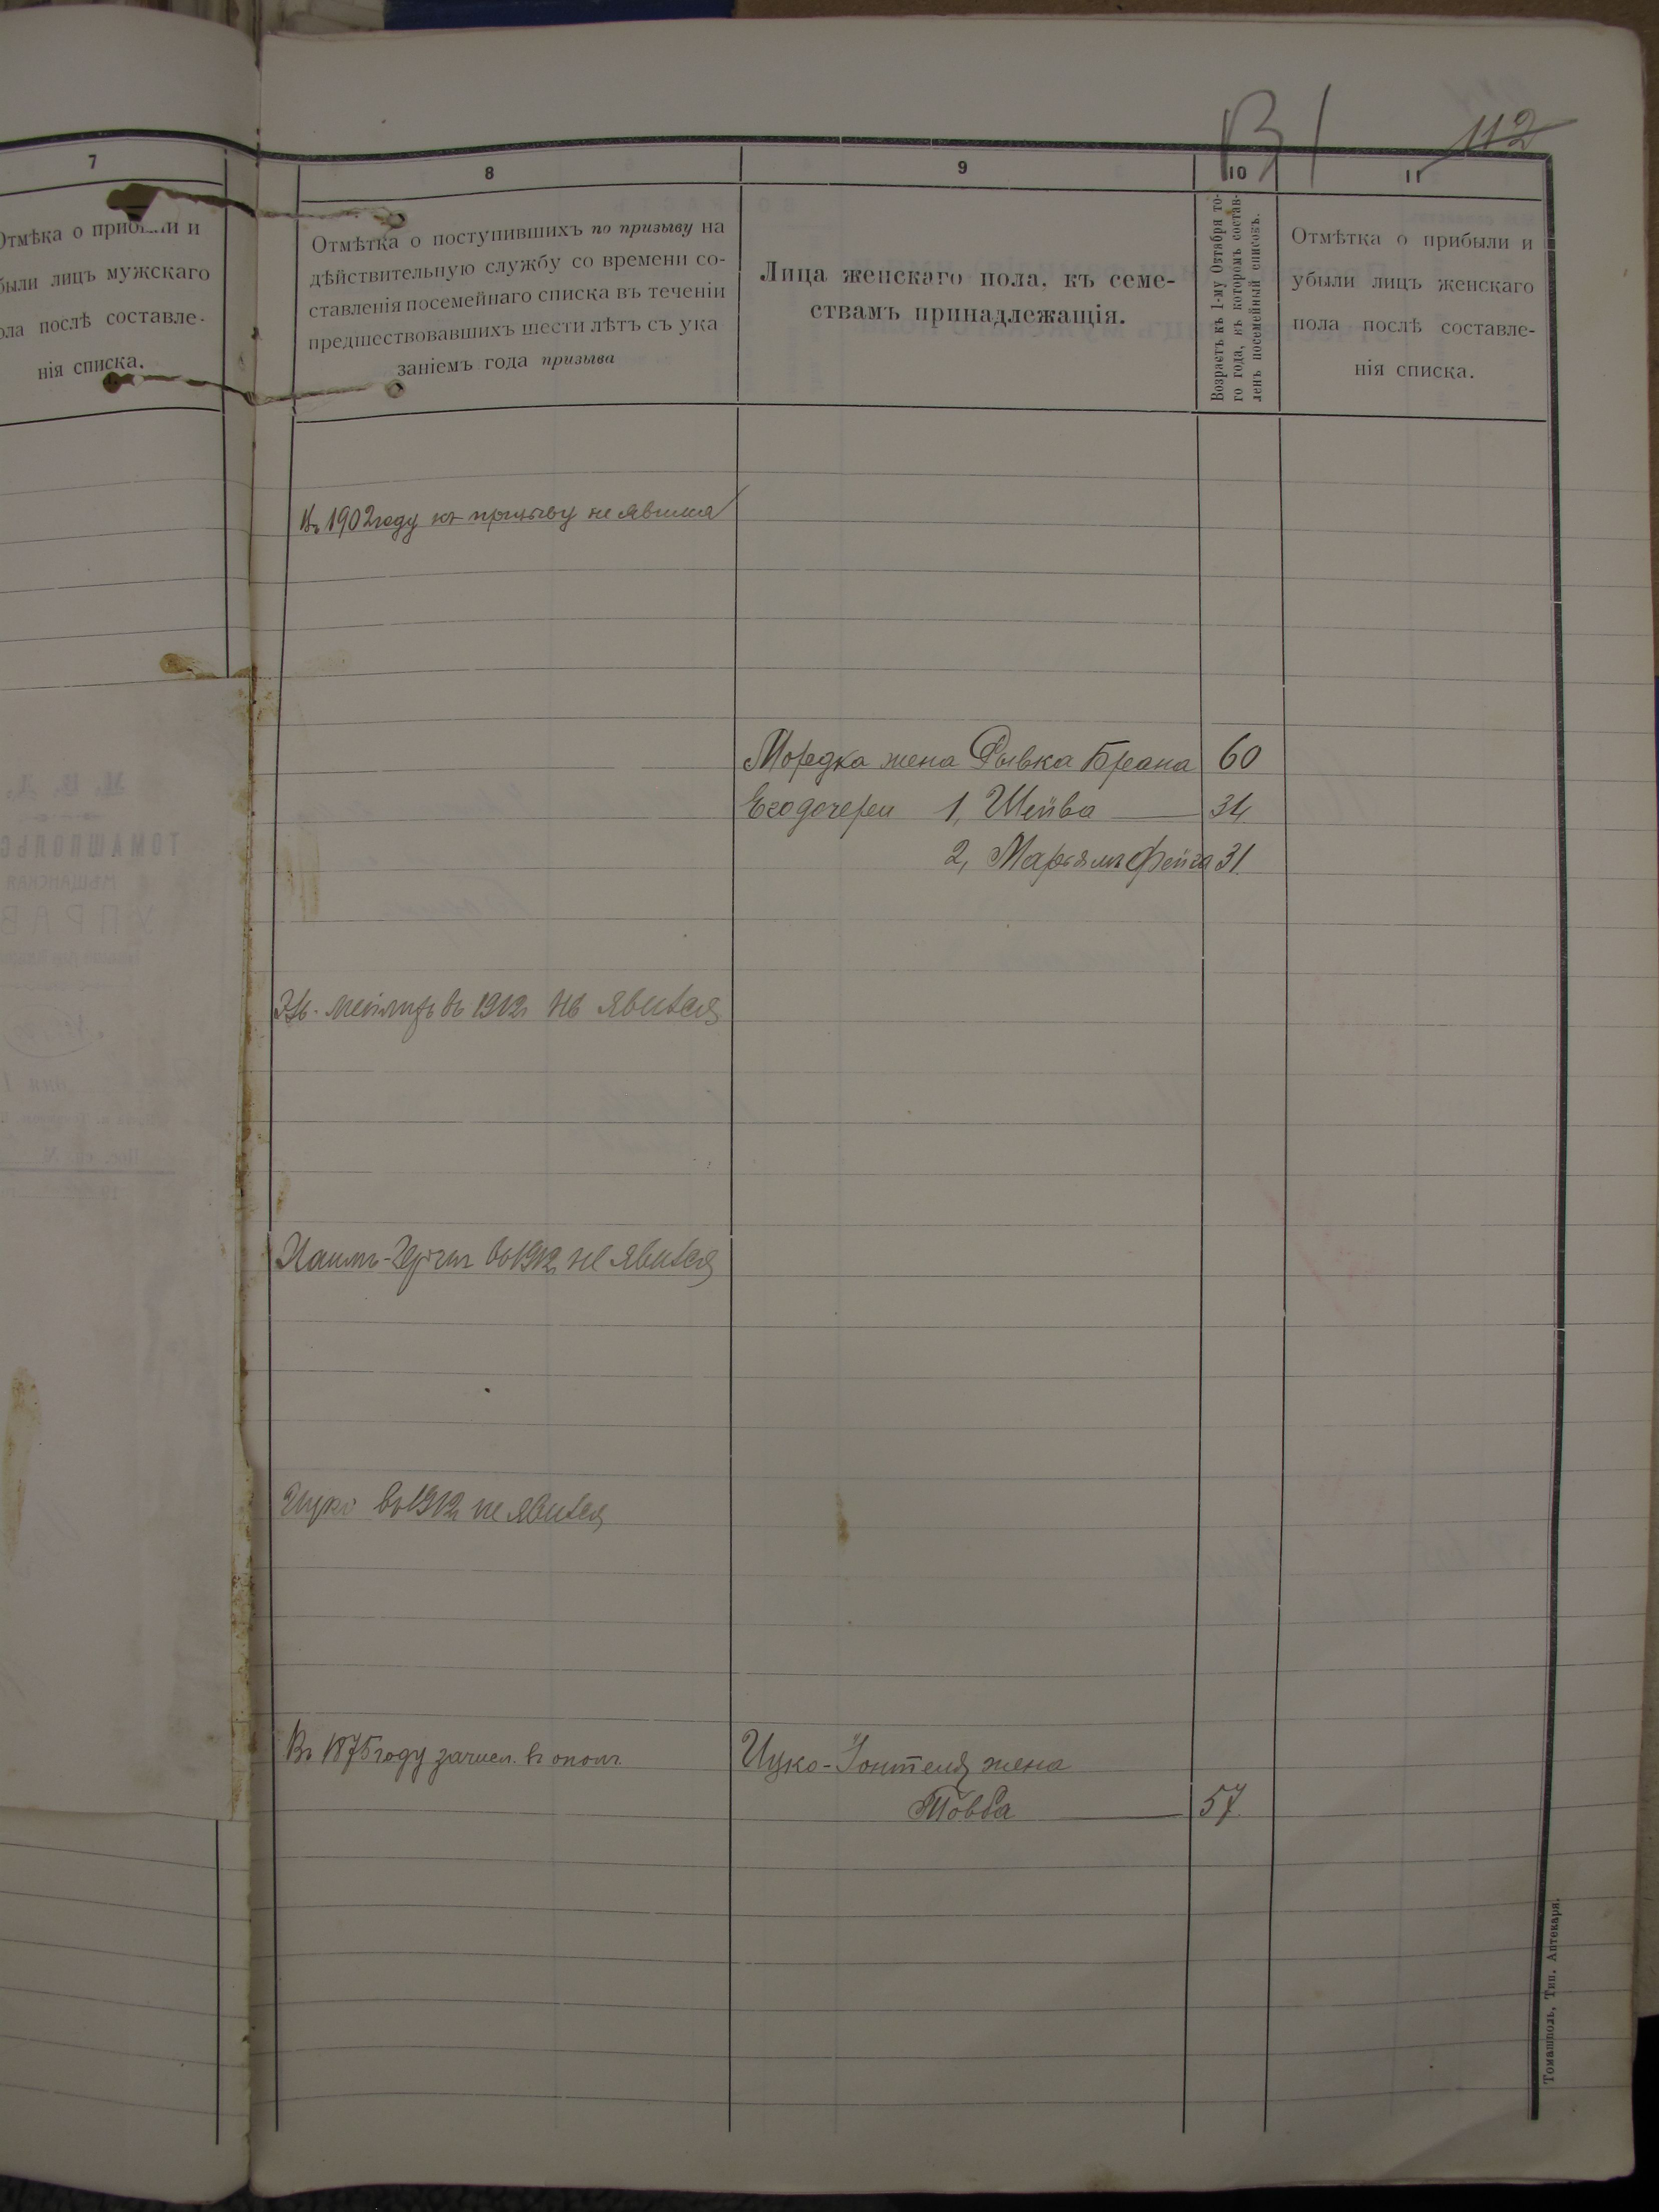 112
7
Отмѣтка о прибыли и
были лицъ мужскаго
ола послѣ составле-
нія списка.
8
Отмѣтка о поступившихъ по призыву на
дѣйствительную службу со времени со-
ставленія посемейнаго списка въ теченіи
предшествовавшихъ шести лѣтъ съ ука
заніемъ года призыва
9
Лица женскаго пола, къ семе-
ствамъ принадлежащія.
10
Возрастъ къ 1-му Октября то-
го года, въ которомъ состав-
ленъ посемейный списокъ.
11
Отмѣтка о прибыли и
убыли лицъ женскаго
пола послѣ составле-
нія списка.
Въ 1902 году къ призыву не явился
Мордка жена Рывка Бреана 60
Его дочери 1, Шейва 34
2, Марьямъ Фейга 31
въ 1912 не явился
Хаимъ- въ 1912 не явился
Ицко въ 1912 не явился
Въ 1875 году зачисл. въ ополч.
Ицко-Іонтеля жена
Товба 57
Томашполь, Тип. Аптекаря.